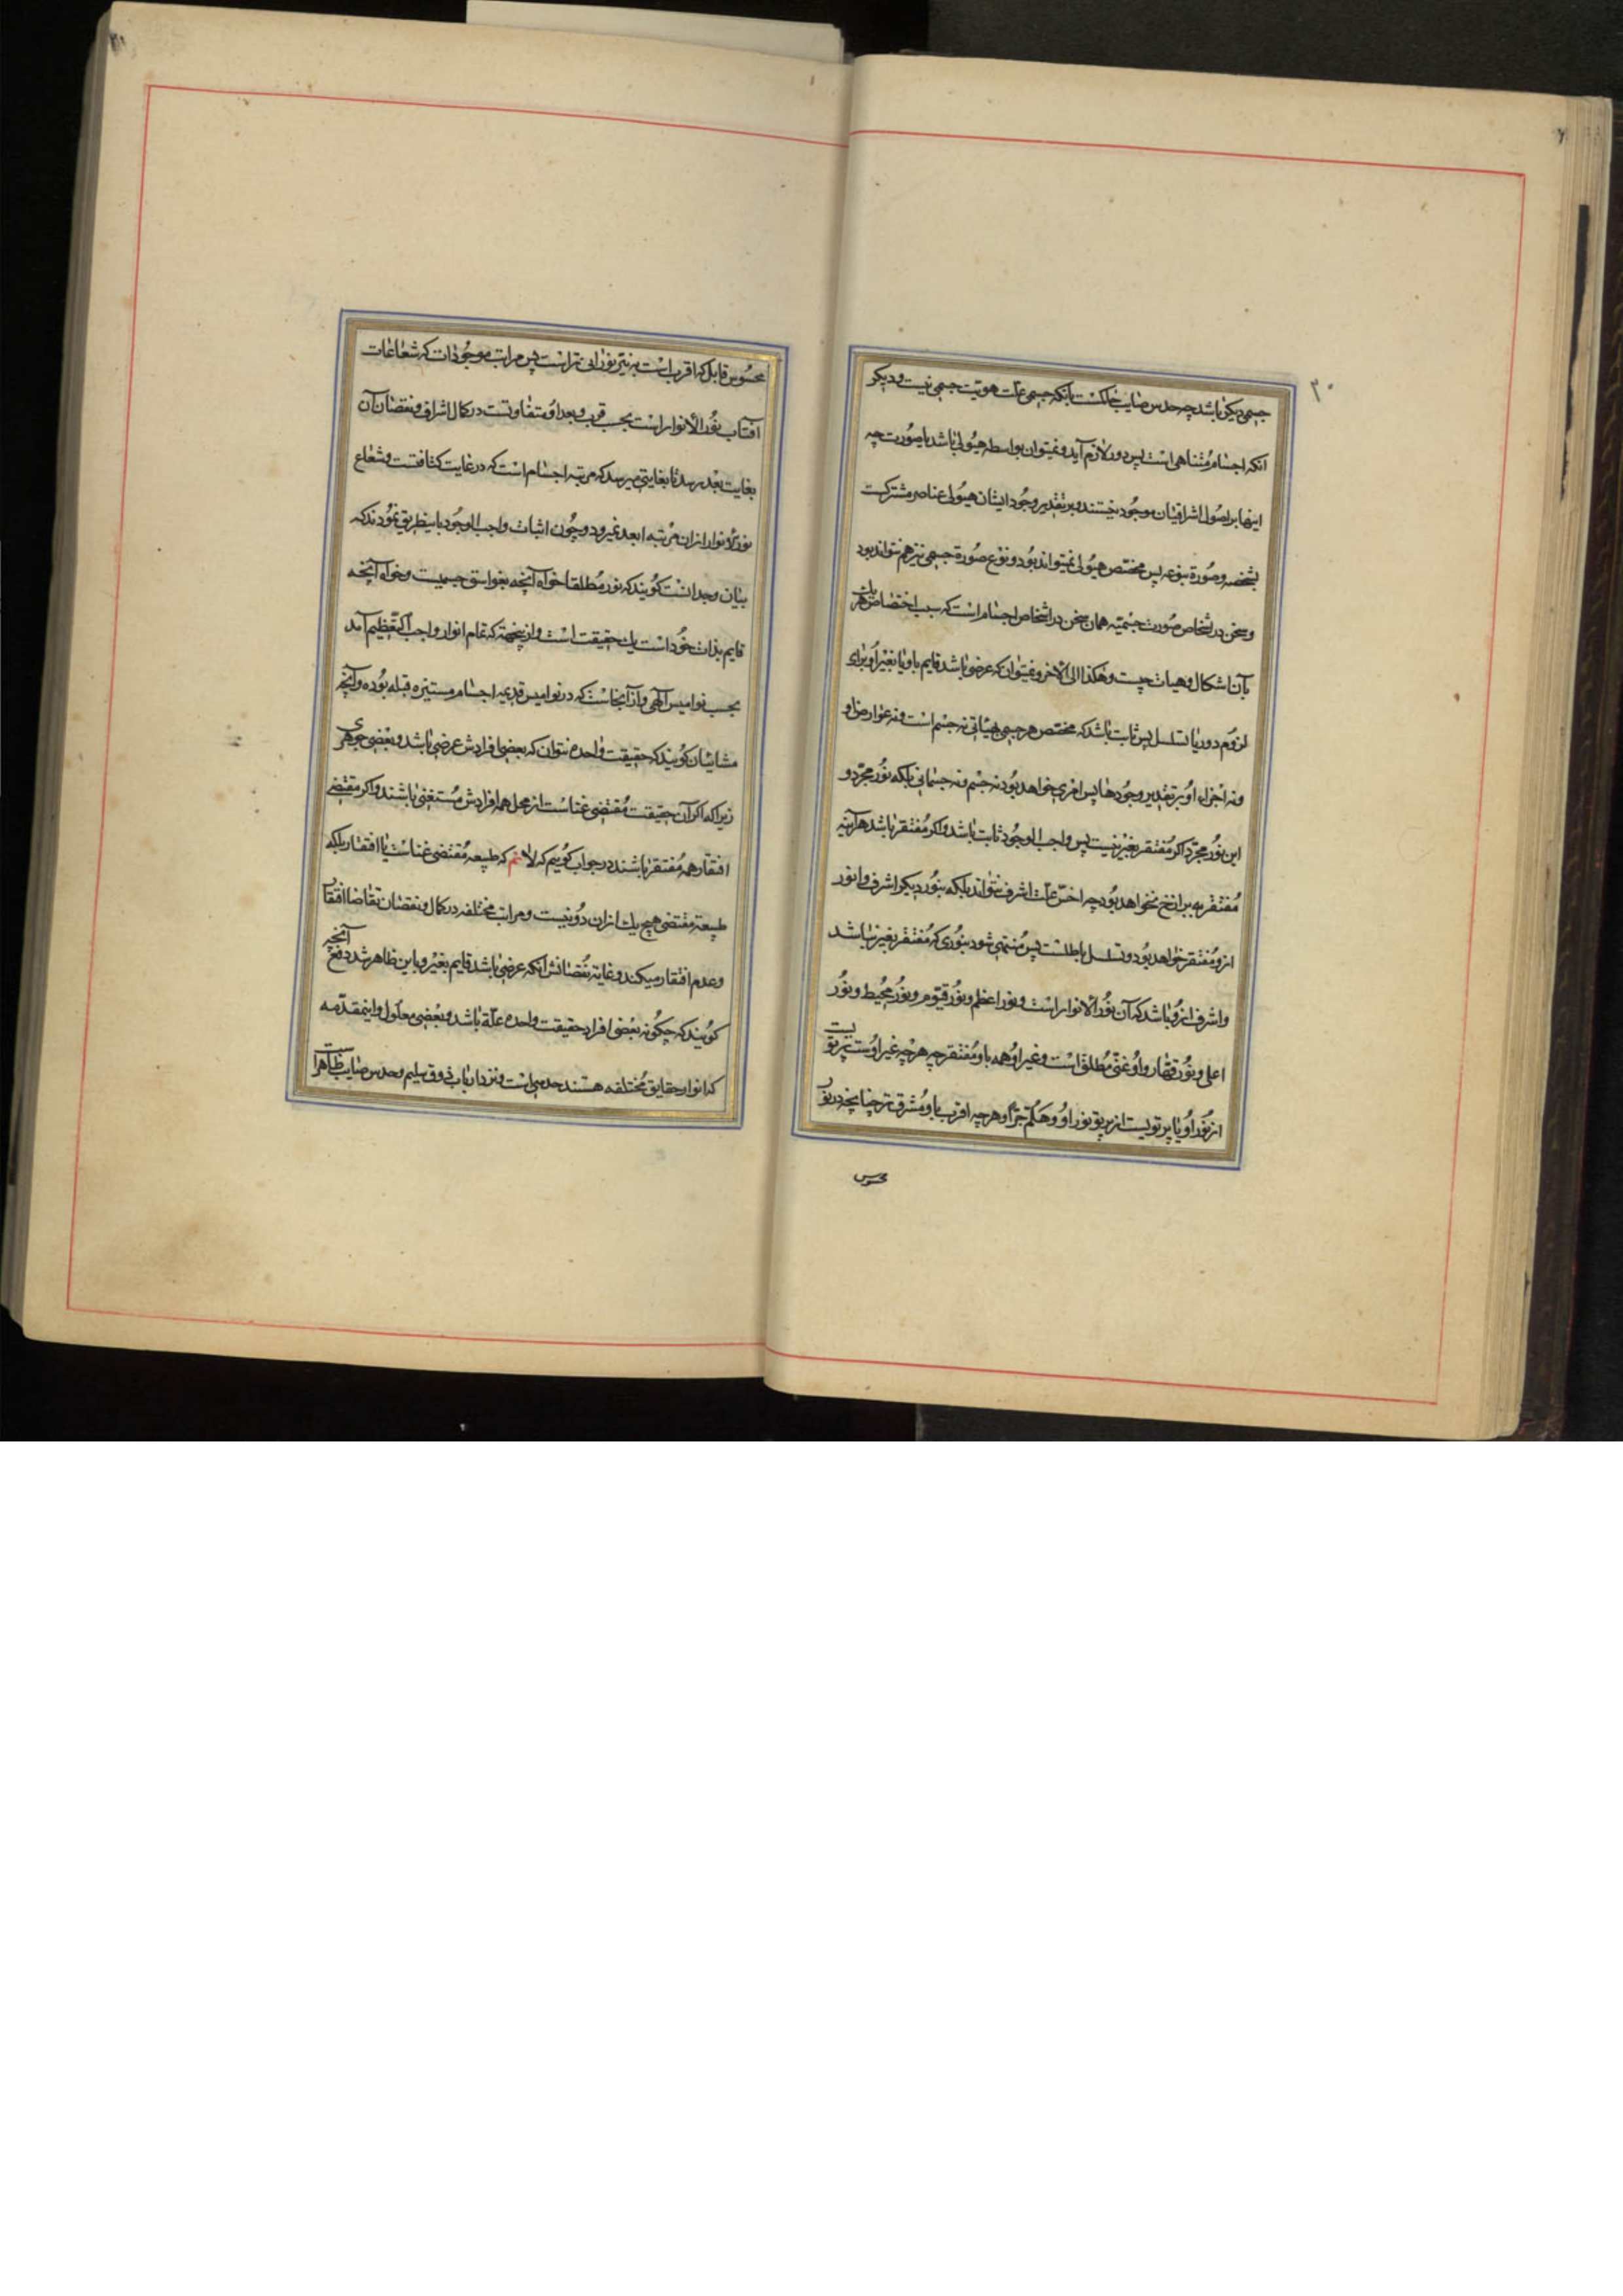 ۳۰
جسمی دیکر باشد چه حدس صایب حاکمست بآنکه جسمی علت هویت جسمی نیست و دیکر
انکه اجسام متناهی است پس دور لازم آید و نمیتوان بواسطه هیولی باشد یا صورت چه
اینها بر اصول اشراقیان موجود نیستند و بر تقدیر وجود ایشان هیولی عناصر مشترکست
بشخصه و صورة بنوعه پس مختص هیولی نمیتواند بود و نوع صورة جسمی نیز هم نتواند بود
و سخن در اشخاص صورت جسمیه همان سخن در اشخاص اجسام است که سبب اختصاص هر یک
بآن اشکال و هیات چیست و هکذا الی الآخر و نمیتوان که عرضی باشد قایم باو یا بغیر او برای
لزوم دور یا تسلسل پس ثابت باشد که مختص هر جسمی بهیاتی نه جسم است و نه عوارض او
و نه اجزاء او بر تقدیر وجودها پس امری خواهد بود نه جسم و نه جسمانی بلکه نور مجرد و
این نور مجرد اکر مفتقر بغیر نیست پس واجب الوجود ثابت باشد و اکر مفتقر باشد هرآینه
مفتقر به برازخ نخواهد بود چه اخس علت اشرف نتواند بلکه بنور دیکر اشرف و انور
ازو مفتقر خواهد بود و تسلسل باطلست پس منتهی شود بنوری که مفتقر بغیر نباشد
و اشرف ازو نباشد که آن نور الانوار است و نور اعظم و نور قیوم و نور محیط و نور
اعلی و نور قهار و او غنی مطلق است و غیر او همه باو مفتقر چه هرچه غیر اوست پرتویست
از نور او یا پرتویست از پرتو نور او و هلم جرا و هرچه اقرب باو مشرق تر چنانچه در نور
محسوس
۳۱
محسوس قابل که اقرب است به نیر نورانی تر است پس مراتب موجودات که شعاعات
آفتاب نور الانوار است بحسب قرب و بعد او متفاوتست در کمال اشراق و نقصان آن
بغایت بعد برسد تا بغایتی میرسد که مرتبه اجسام است که در غایت کثافتست و شعاع
نور الانوار ازان مرتبه ابعد نمیرود و چون اثبات واجب الوجود باینطریق نمودند که
بیان وجدانست کویند که نور مطلقا خواه آنچه بغواسق جسمیت و خواه آنچه
قایم بذات خود است یک حقیقت است و ازینجهة که تمام انوار واجب التعظیم آمد
بحسب نوامیس آلهی و از آنجاست که در نوامیس قدیمه اجسام مستنیره قبله بوده و آنچه
مشاییان کویند که حقیقت واحده نتوان که بعضی افرادش عرضی باشد و بعضی جوهری
زیرا که اکر آن حقیقت مقتضی غناست از محل همه افرادش مستغنی باشند و اکر مقتضی
افتقار همه مفتقر باشند در جواب کوییم که لانم که طبیعه مقتضی غناست یا افتقار بلکه
طبیعة مقتضی هیچ یک ازان دو نیست و مراتب مختلفه در کمال و نقصان تقاضا افتقار
و عدم افتقار میکند و غایة نقصانش آنکه عرضی باشد قایم بغیر و باین ظاهر شد دفع آنچه
کویند که چکونه بعضی افراد حقیقت واحده علة باشد و بعضی معلول و اینمقدمه
که انوار حقایق مختلفه هستند حدسی است و نزد ارباب ذوق سلیم و حدس صایب ظاهراست